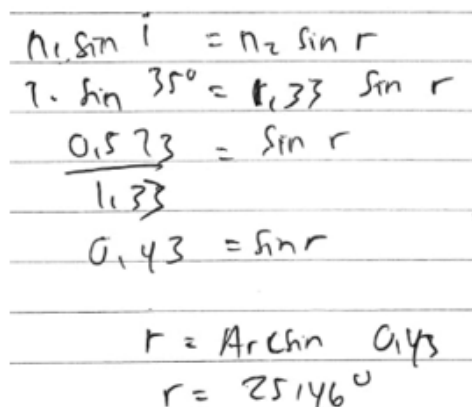 n₁ sin i = n₂ sin r
1. sin 35° = 1,33 sin r
0,573 / 1,33 = sin r
0,43 = sin r
r = Arcsin 0,43
r = 25,46°